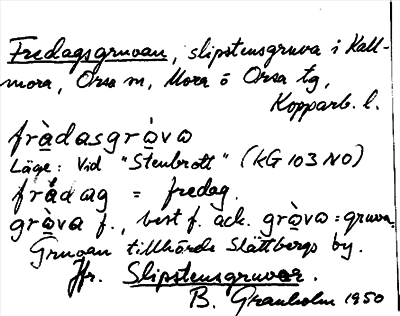 Fredagsgruvan, slipstensgruva i Kall-
mora, Orsa sn, Mora o Orsa tg,
Kopparb. l.
frà̠dasgrò̠va
Läge: Vid "Stenbrott" (KG 103 NO)
frà̠dag = fredag.
grò̠va f., best f. ack. grò̠va = gruva.
Gruvan tillhörde Slättbergs by.
Jfr. Slipstensgruvor.
B. Granholm 1950